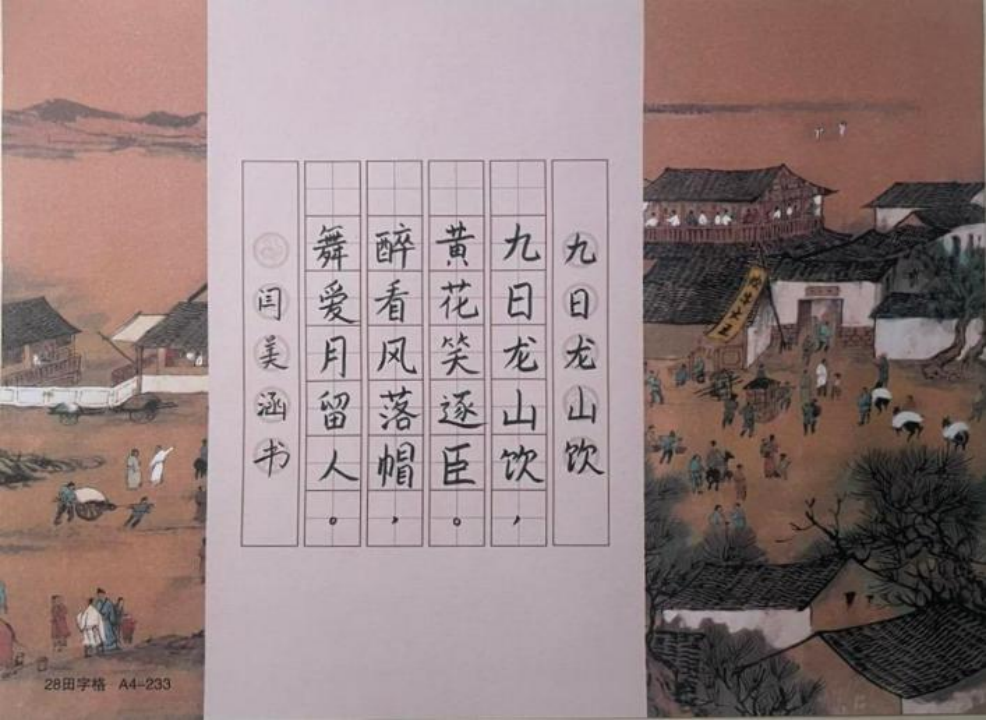 九日龙山饮
九日龙山饮，
黄花笑逐臣。
醉看风落帽，
舞爱月留人。
闫美涵书
28田字格 A4-233